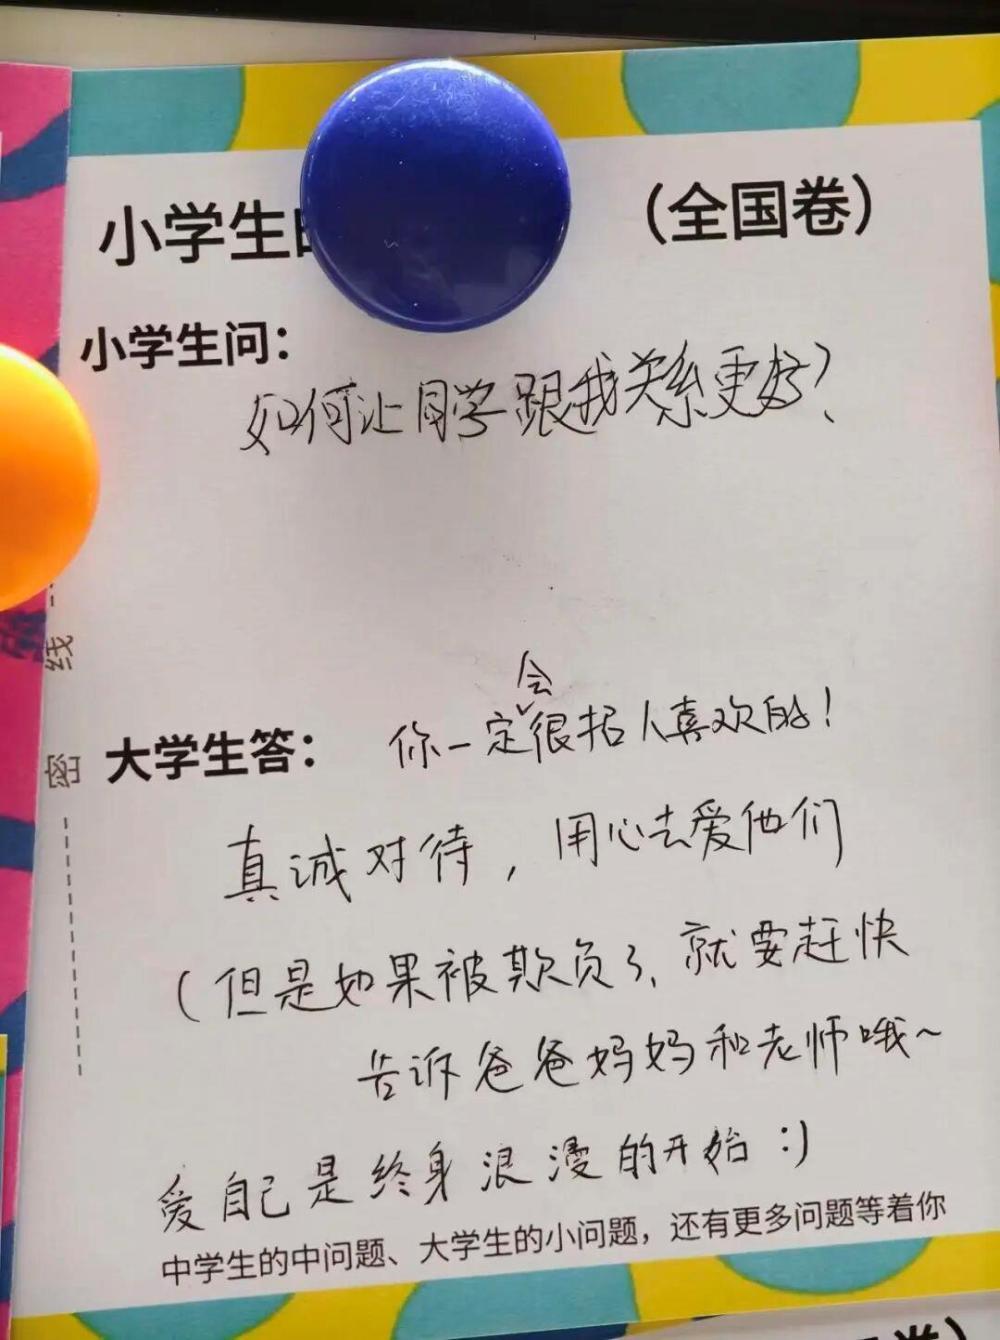 小学生 （全国卷）
小学生问：
如何让同学跟我关系更好？
会
大学生答： 你一定很招人喜欢的！
真诚对待，用心去爱他们
（但是如果被欺负了、就要赶快
告诉爸爸妈妈和老师哦～
爱自己是终身浪漫的开始 :)
中学生的中问题、大学生的小问题，还有更多问题等着你
线
密